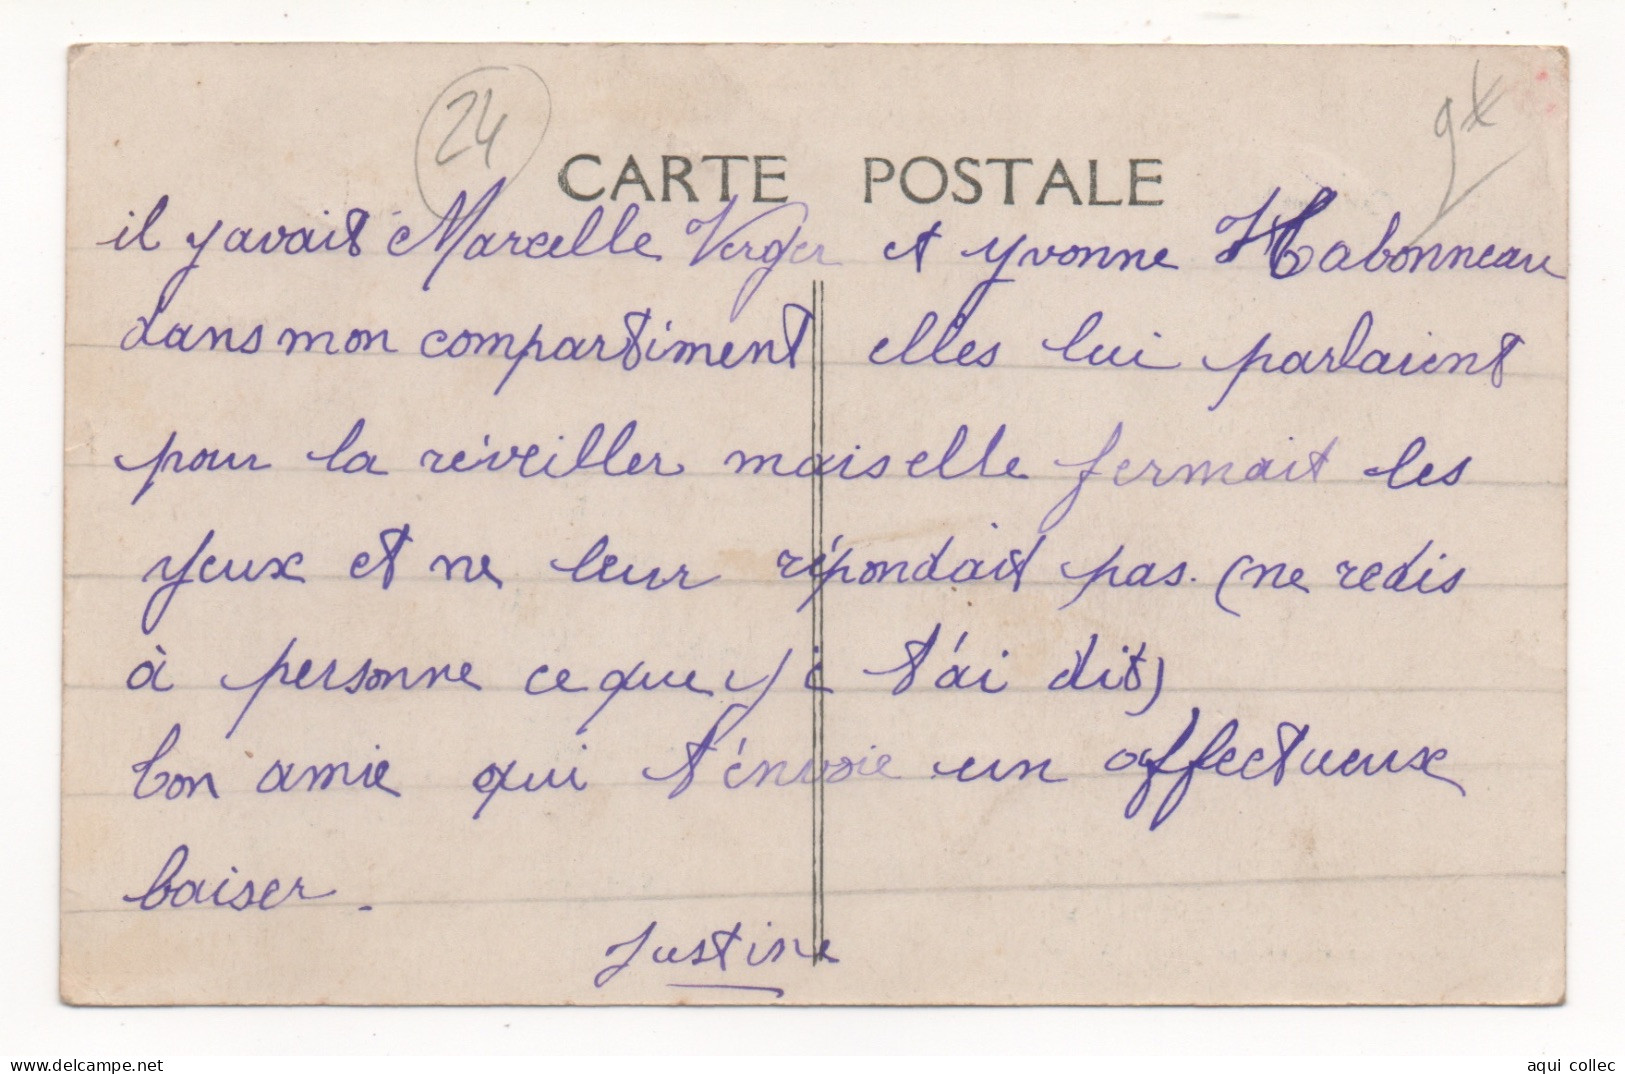 24
CARTE POSTALE
il y avait Marcelle Verger et Yvonne Habonneau
dans mon compartiment elles lui parlaient
pour la réveiller mais elle fermait les
yeux et ne leur répondait pas. (ne redis
à personne ce que j t'ai dit)
bon amie qui t'envoie un affectueux
baiser.
Justine
delcampe.net
aqui collec